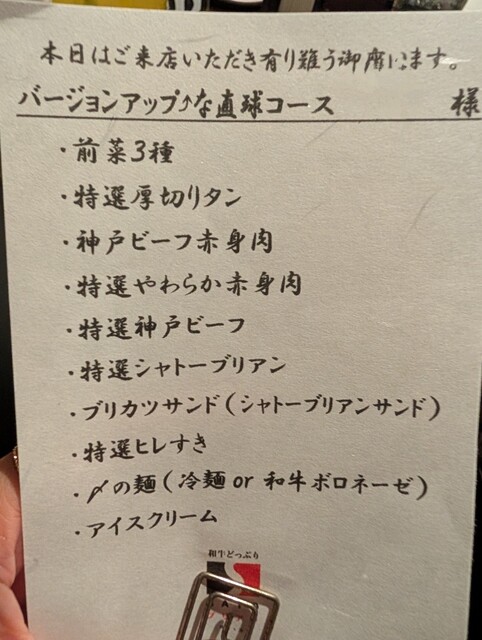 本日はご来店いただき有り難う御座います。
バージョンアップ↑な直球コース 様
・前菜3種
・特選厚切りタン
・神戸ビーフ赤身肉
・特選やわらか赤身肉
・特選神戸ビーフ
・特選シャトーブリアン
・ブリカツサンド(シャトーブリアンサンド)
・特選ヒレすき
・〆の麺(冷麺or 和牛ボロネーゼ)
・アイスクリーム
和牛どっぷり